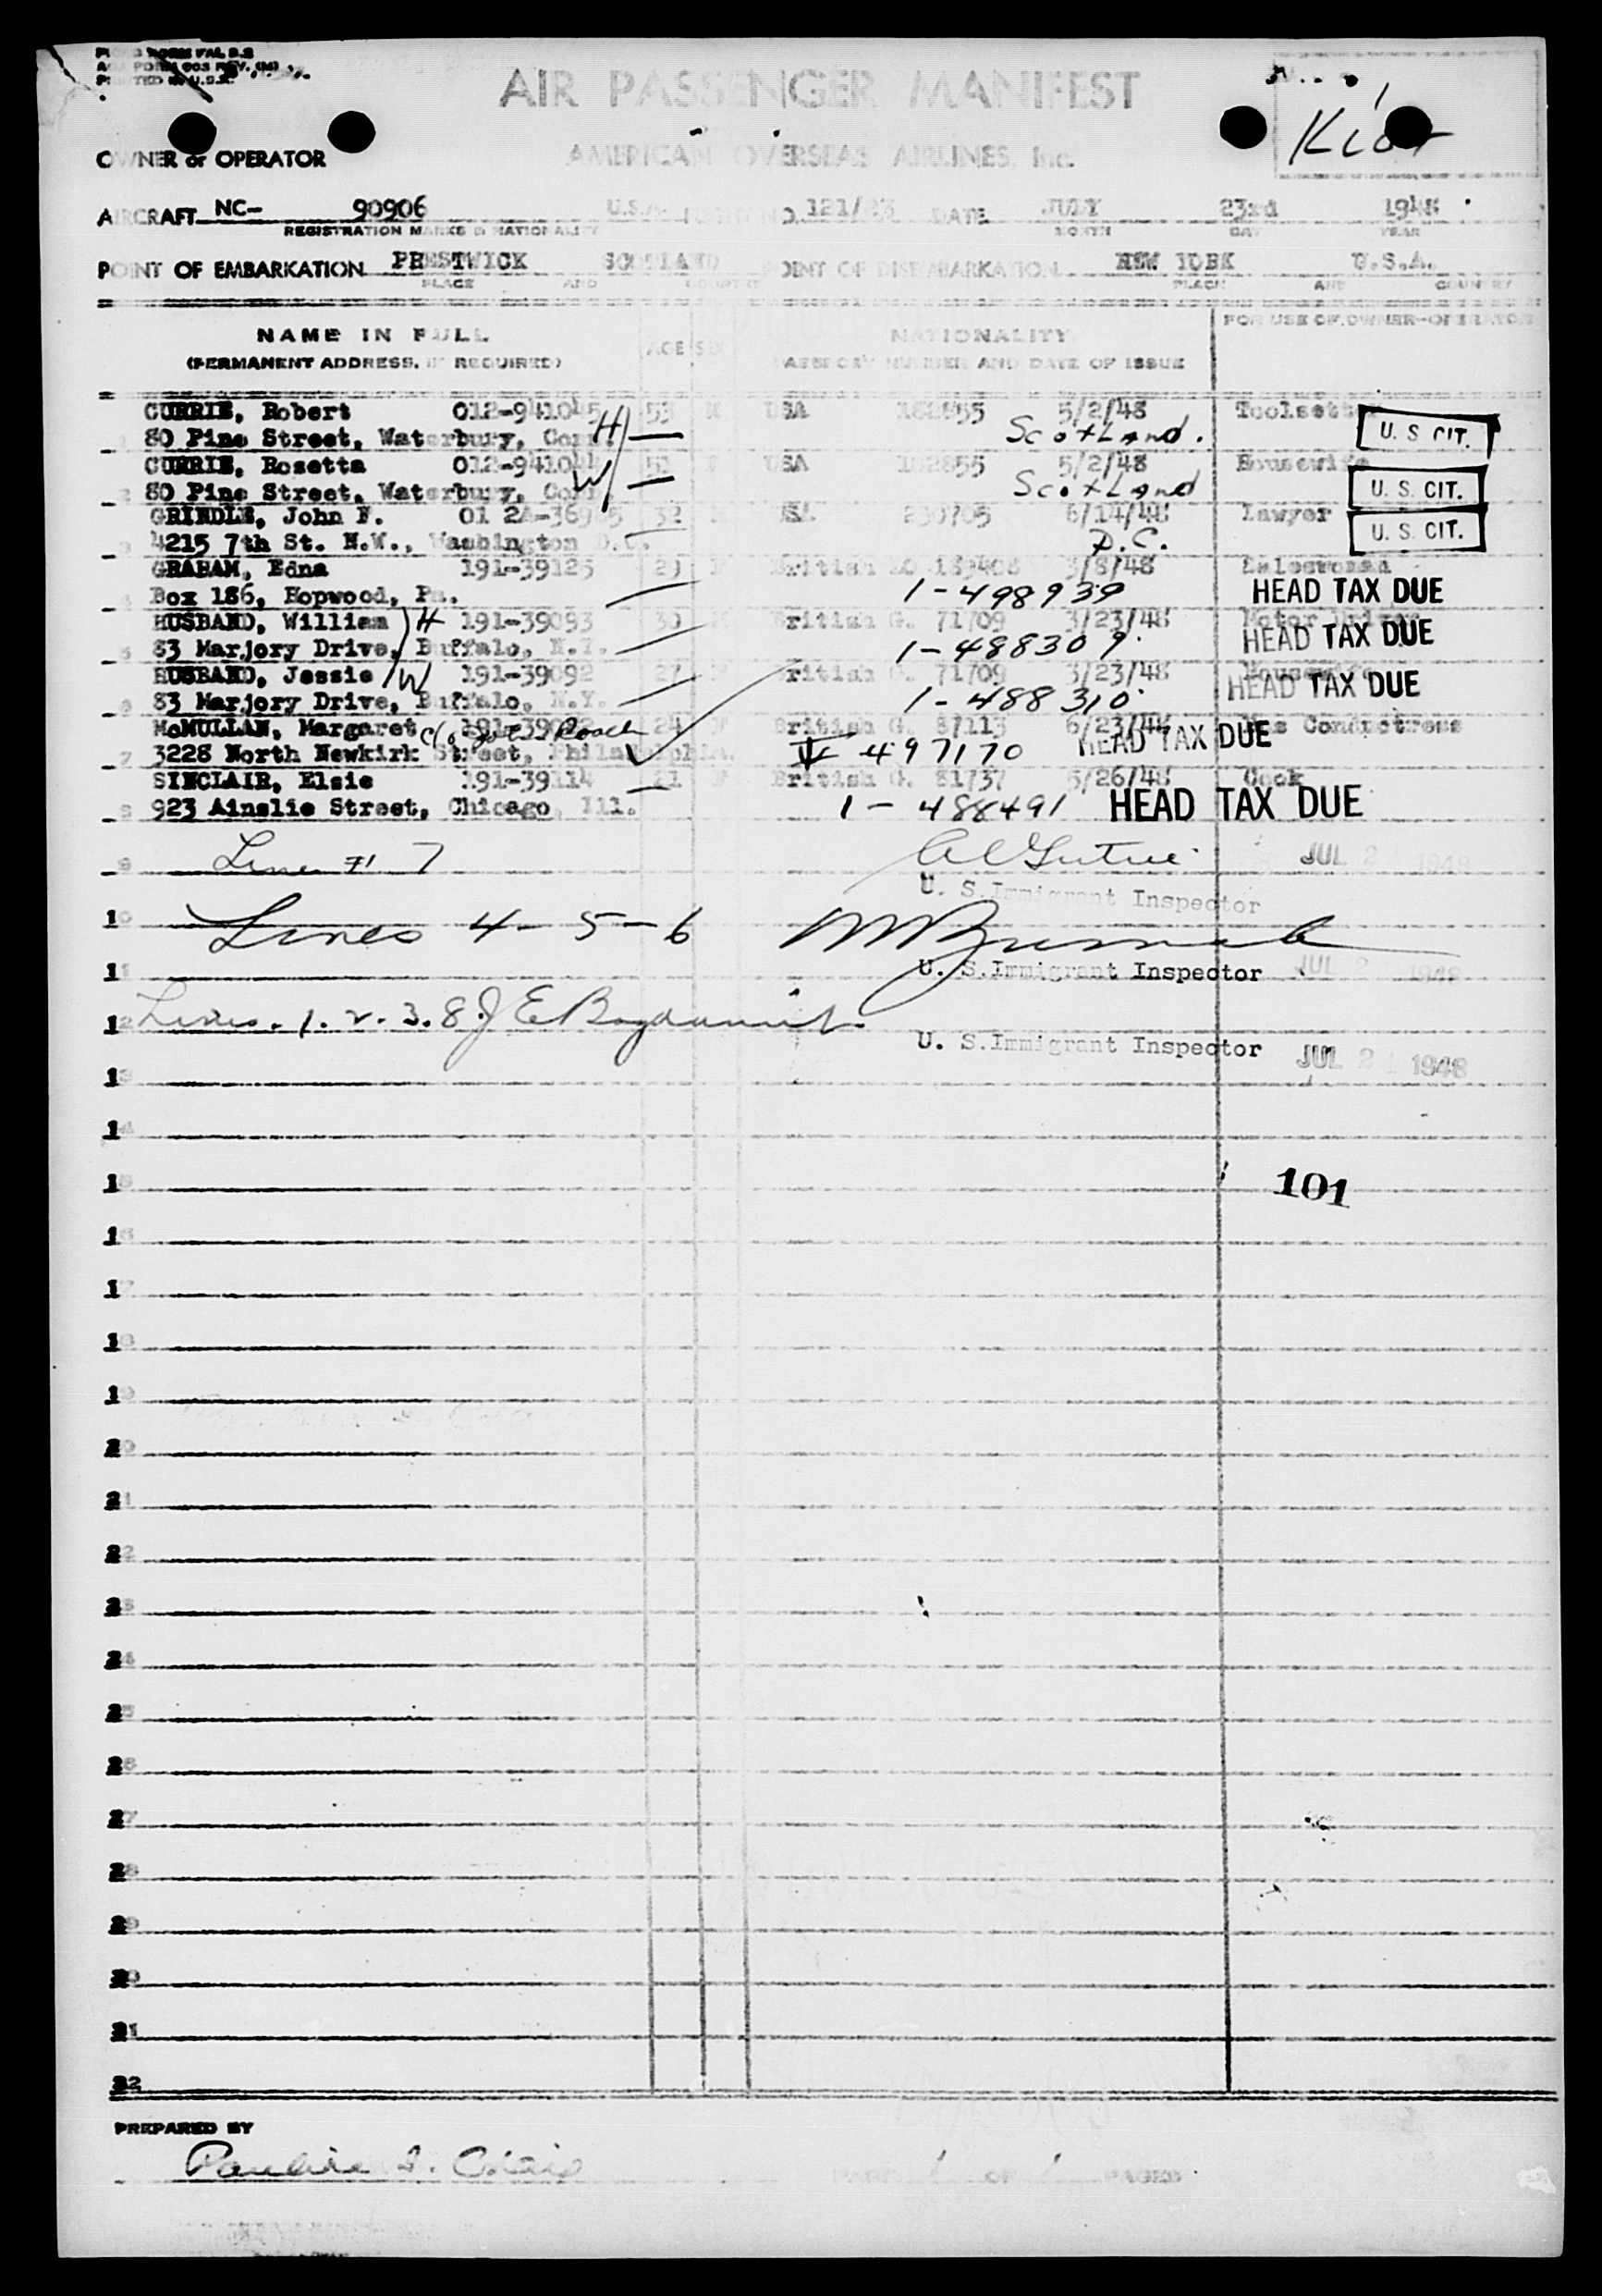 PRINTED IN U.S.A.
AIR PASSENGER MANIFEST
OWNER or OPERATOR AMERICAN OVERSEAS AIRLINES, Inc.
AIRCRAFT NC- 90906 U.S.A. 121/23 DATE JULY 23rd 1948
REGISTRATION MARKS & NATIONALITY MONTH DAY YEAR
POINT OF EMBARKATION PRESTWICK SCOTLAND POINT OF DISEMBARKATION NEW YORK U.S.A.
PLACE AND COUNTRY PLACE AND COUNTRY
NAME IN FULL AGE SEX NATIONALITY FOR USE OF OWNER-OPERATOR
(PERMANENT ADDRESS, IF REQUIRED) PASSPORT NUMBER AND DATE OF ISSUE
CURRIE, Robert 012-941045 H 53 M USA 182855 5/2/48 Toolsetter
1 80 Pine Street, Waterbury, Conn. Scotland. U. S. CIT.
CURRIE, Rosetta 012-941044 W F USA 182855 5/2/48 Housewife
2 80 Pine Street, Waterbury, Conn Scotland U. S. CIT.
GRINDLE, John F. 01 2A-36985 32 M USA 6/14/48 Lawyer
3 4215 7th St. N.W., Washington D.C. D.C. U. S. CIT.
GRAHAM, Edna 191-39125 F British 3/8/48 Saleswoman
4 Box 186, Hopwood, Pa. 1-498939 HEAD TAX DUE
HUSBAND, William H 191-39093 30 M British G. 71709 3/23/48 Motor Driver
5 83 Marjory Drive, Buffalo, N.Y. 1-488309. HEAD TAX DUE
HUSBAND, Jessie W 191-39092 27 F British G. 71709 3/23/48 Housewife
6 83 Marjory Drive, Buffalo, N.Y. 1-488310. HEAD TAX DUE
McMULLAN, Margaret c/o Roach 24 F British G. 87113 6/23/48 Conductress
7 3228 North Newkirk Street, Philadelphia. 497170 HEAD TAX DUE
SINCLAIR, Elsie 191-39114 21 F British G. 81737 5/26/48 Cook
8 923 Ainslie Street, Chicago, Ill. 1-488491 HEAD TAX DUE
9 Line # 7 JUL 1948
U. S. Immigrant Inspector
10 Lines 4-5-6
11 U. S. Immigrant Inspector JUL 1948
12 Lines. 1. 2. 3. 8.
U. S. Immigrant Inspector JUL 1948
13
14
15 101
16
17
18
19
20
21
22
23
24
25
26
27
28
29
30
31
32
PREPARED BY
PAGE 1 OF 1 PAGES